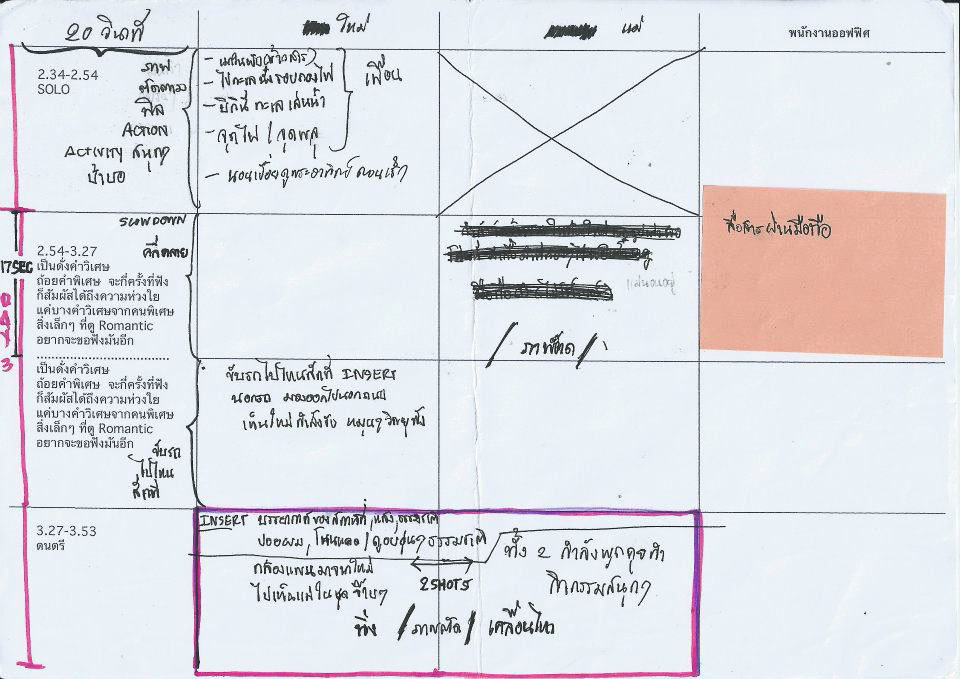 20 วินาที
ใหม่
แม่
พนักงานออฟฟิศ
2.34-2.54
SOLO
ภาพ
ตัดตาาง
ฟีล
ACTION
ACTIVITY สนุกๆ
บ้าบอ
- ไปทะเลนั่งรอบกองไฟ
- บิกินี่ ทะเล เล่นน้ำ
- จุดไฟ / จุดพลุ
- นอนเปื่อยดูพระอาทิตย์ ตอนเช้า
เพื่อน
SLOWDOWN
คลี่คลาย
17SEC
DAY 3
2.54-3.27
เป็นดั่งคำวิเศษ
ถ้อยคำพิเศษ จะกี่ครั้งที่ฟัง
ก็สัมผัสได้ถึงความห่วงใย
แค่บางคำวิเศษจากคนพิเศษ
สิ่งเล็กๆ ที่ดู Romantic
อยากจะขอฟังมันอีก
/ ภาพตัด /
สื่อสารผ่านมือถือ
เป็นดั่งคำวิเศษ
ถ้อยคำพิเศษ จะกี่ครั้งที่ฟัง
ก็สัมผัสได้ถึงความห่วงใย
แค่บางคำวิเศษจากคนพิเศษ
สิ่งเล็กๆ ที่ดู Romantic
อยากจะขอฟังมันอีก
ขับรถ
ไปไหน
สักที่
ขับรถไปไหนสักที่ INSERT
นอกรถ มองออกไปนอกถนน
เห็นใหม่ กำลังขับ หมุนๆ วิทยุฟัง
3.27-3.53
ดนตรี
INSERT บรรยากาศของสถานที่, แสง, ธรรมชาติ
ปอยผม, โดนแดด / ดูอบอุ่นๆ ธรรมชาติ
กล้องแพนมาจากใหม่
ไปเห็นแม่ในชุด จี๊ดๆ
2SHOTS
ทั้ง 2 กำลังพูดคุยทำ
กิจกรรมสนุกๆ
นิ่ง / ภาพตัด / เคลื่อนไหว